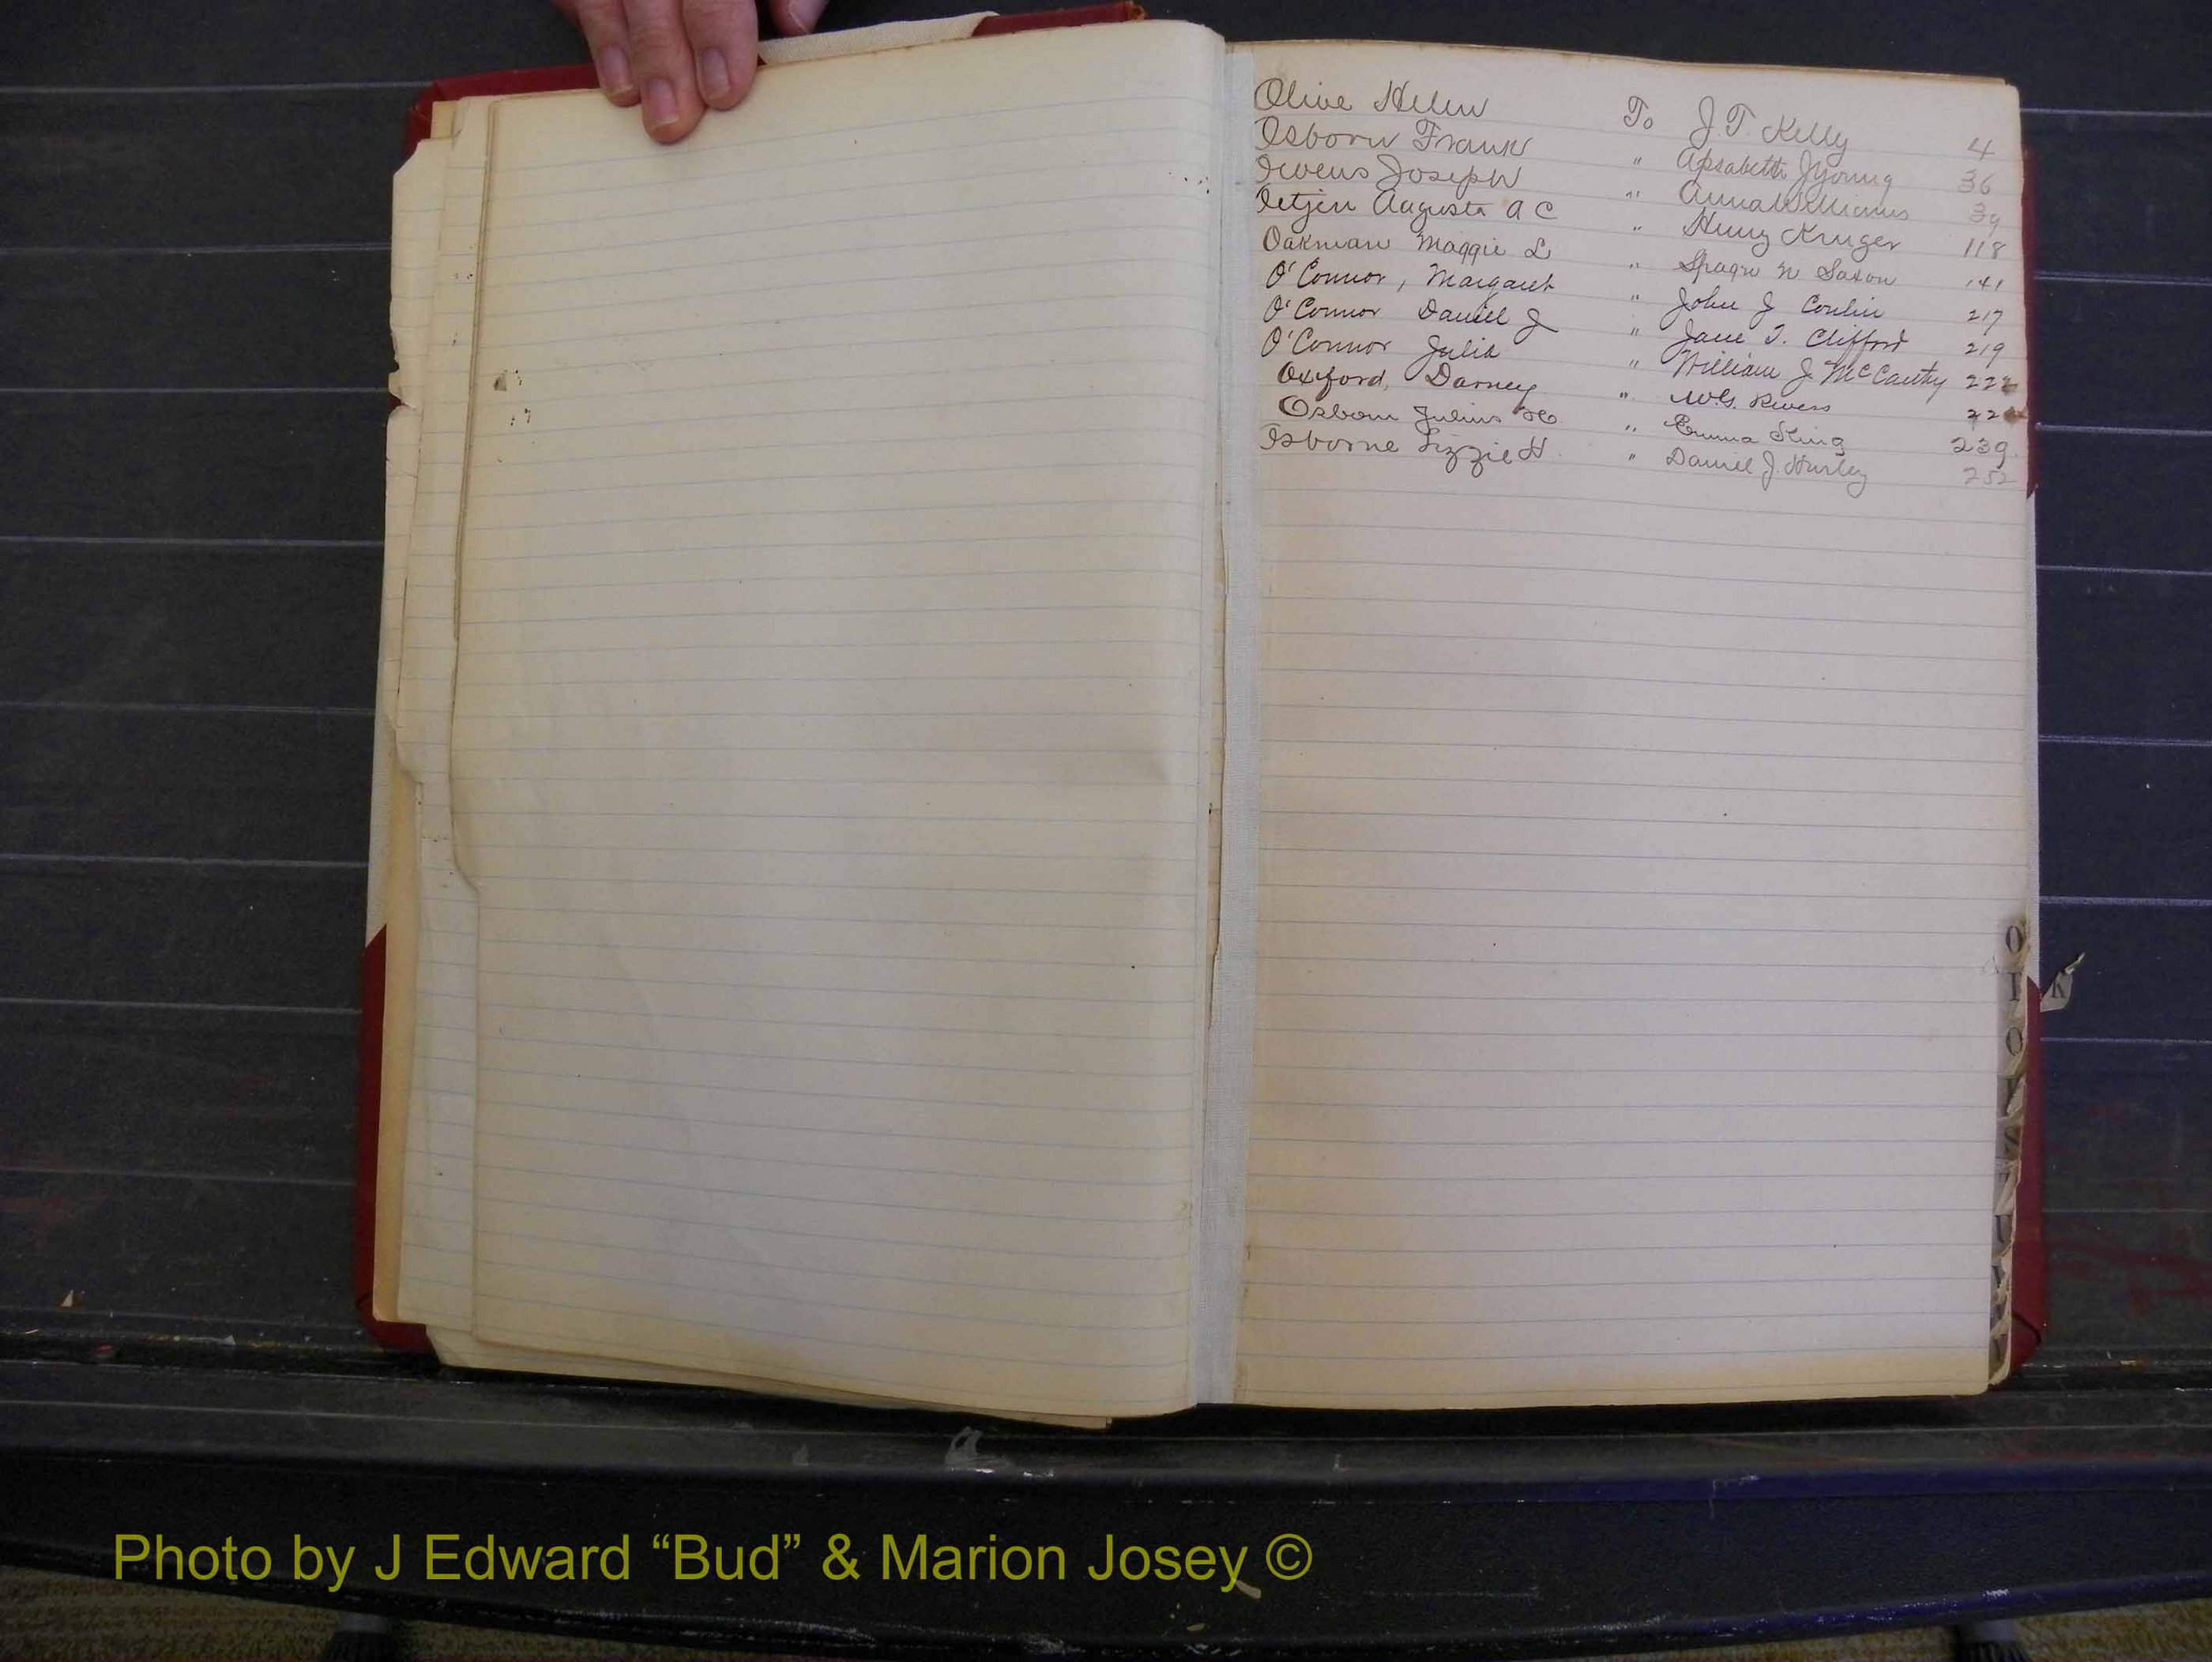 Olive Helen To J. T. Kelly 4
Osborn Frank " Apsabeth J Young 36
Owens Joseph " Anna Williams 39
Oetjen Augusta A C " Henry Kruger 118
Oakman Maggie L " N Saxon 141
O'Connor, Margaret " John J Conlin 217
O'Connor Daniel J " Jane T. Clifford 219
O'Connor Julia " William J McCarthy 222
Oxford, Darney " W.G. Rivers 22
Osborn Julius " Emma King 239
Osborne Lizzie H. " Daniel J. Hurley 252
O
K
O
S
U
Photo by J Edward “Bud” & Marion Josey ©